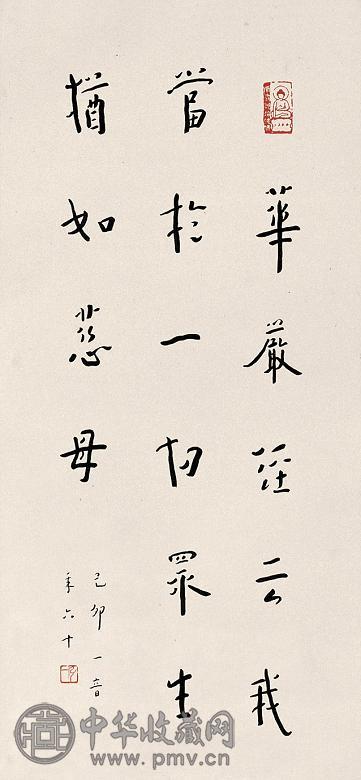 華嚴經云我
當於一切眾生
猶如慈母
己卯一音
年六十
中华收藏网
www.pmv.cn